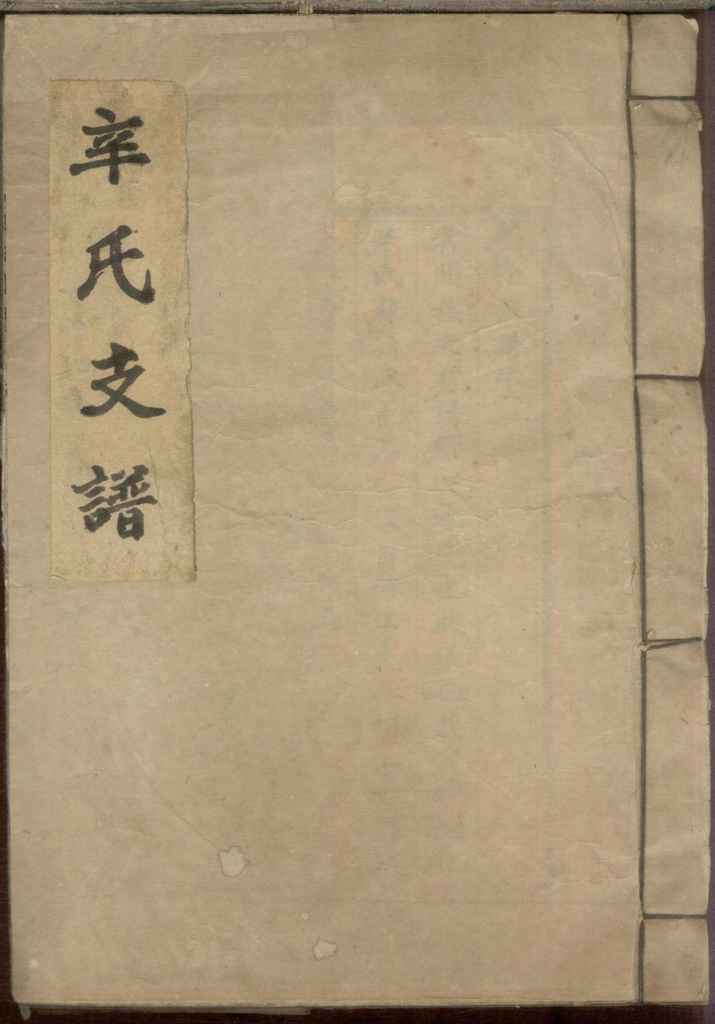 辛氏支譜